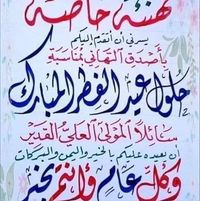 تهنئة خاصة
يسرني أن أتقدم إليكم
بأصدق التهاني بمناسبة
حلول عيد الفطر المبارك
سائلا المولى العلي القدير
أن يعيده عليكم بالخير واليمن والبركات
وكل عام وأنتم بخير